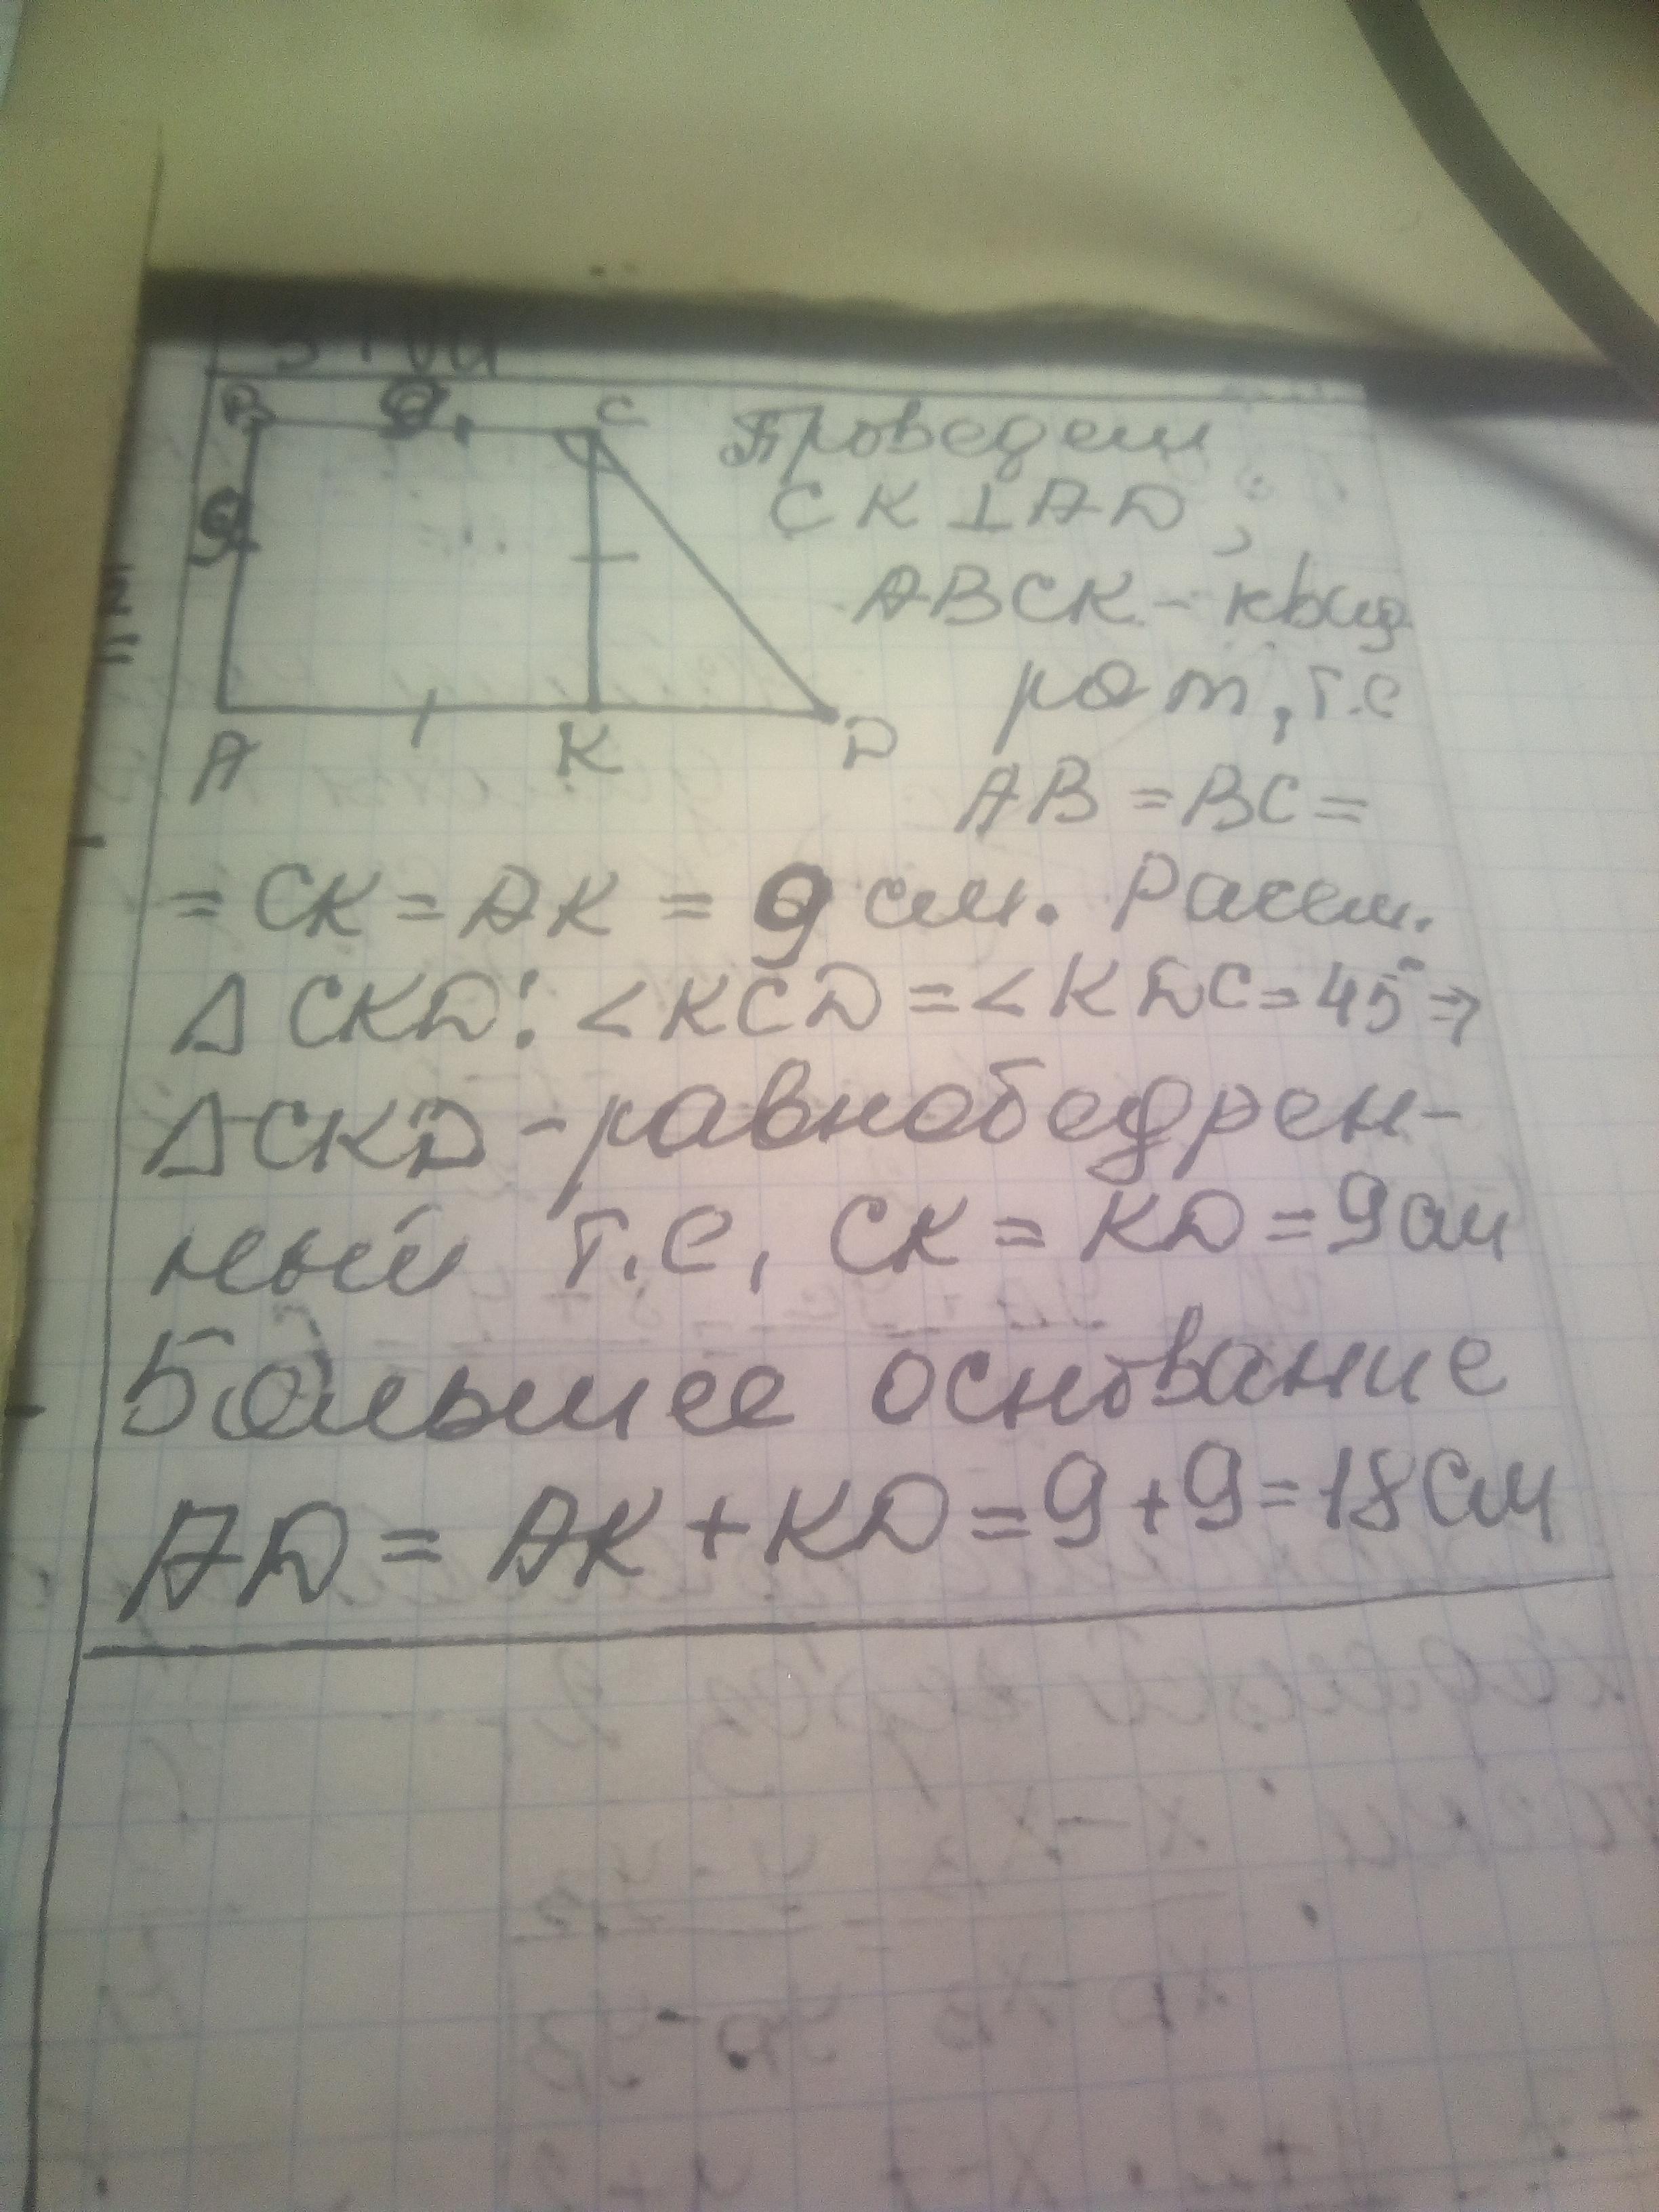 B 9 C
9
A K D
Проведем
CK ⊥ AD;
ABCK - квад
рат, т.е
AB = BC =
= CK = AK = 9 см. Рассм.
Δ CKD: <KCD = <KDC = 45° ⇒
ΔCKD - равнобедрен-
ный т.е, CK = KD = 9 см
Большее основание
AD = AK + KD = 9 + 9 = 18 см